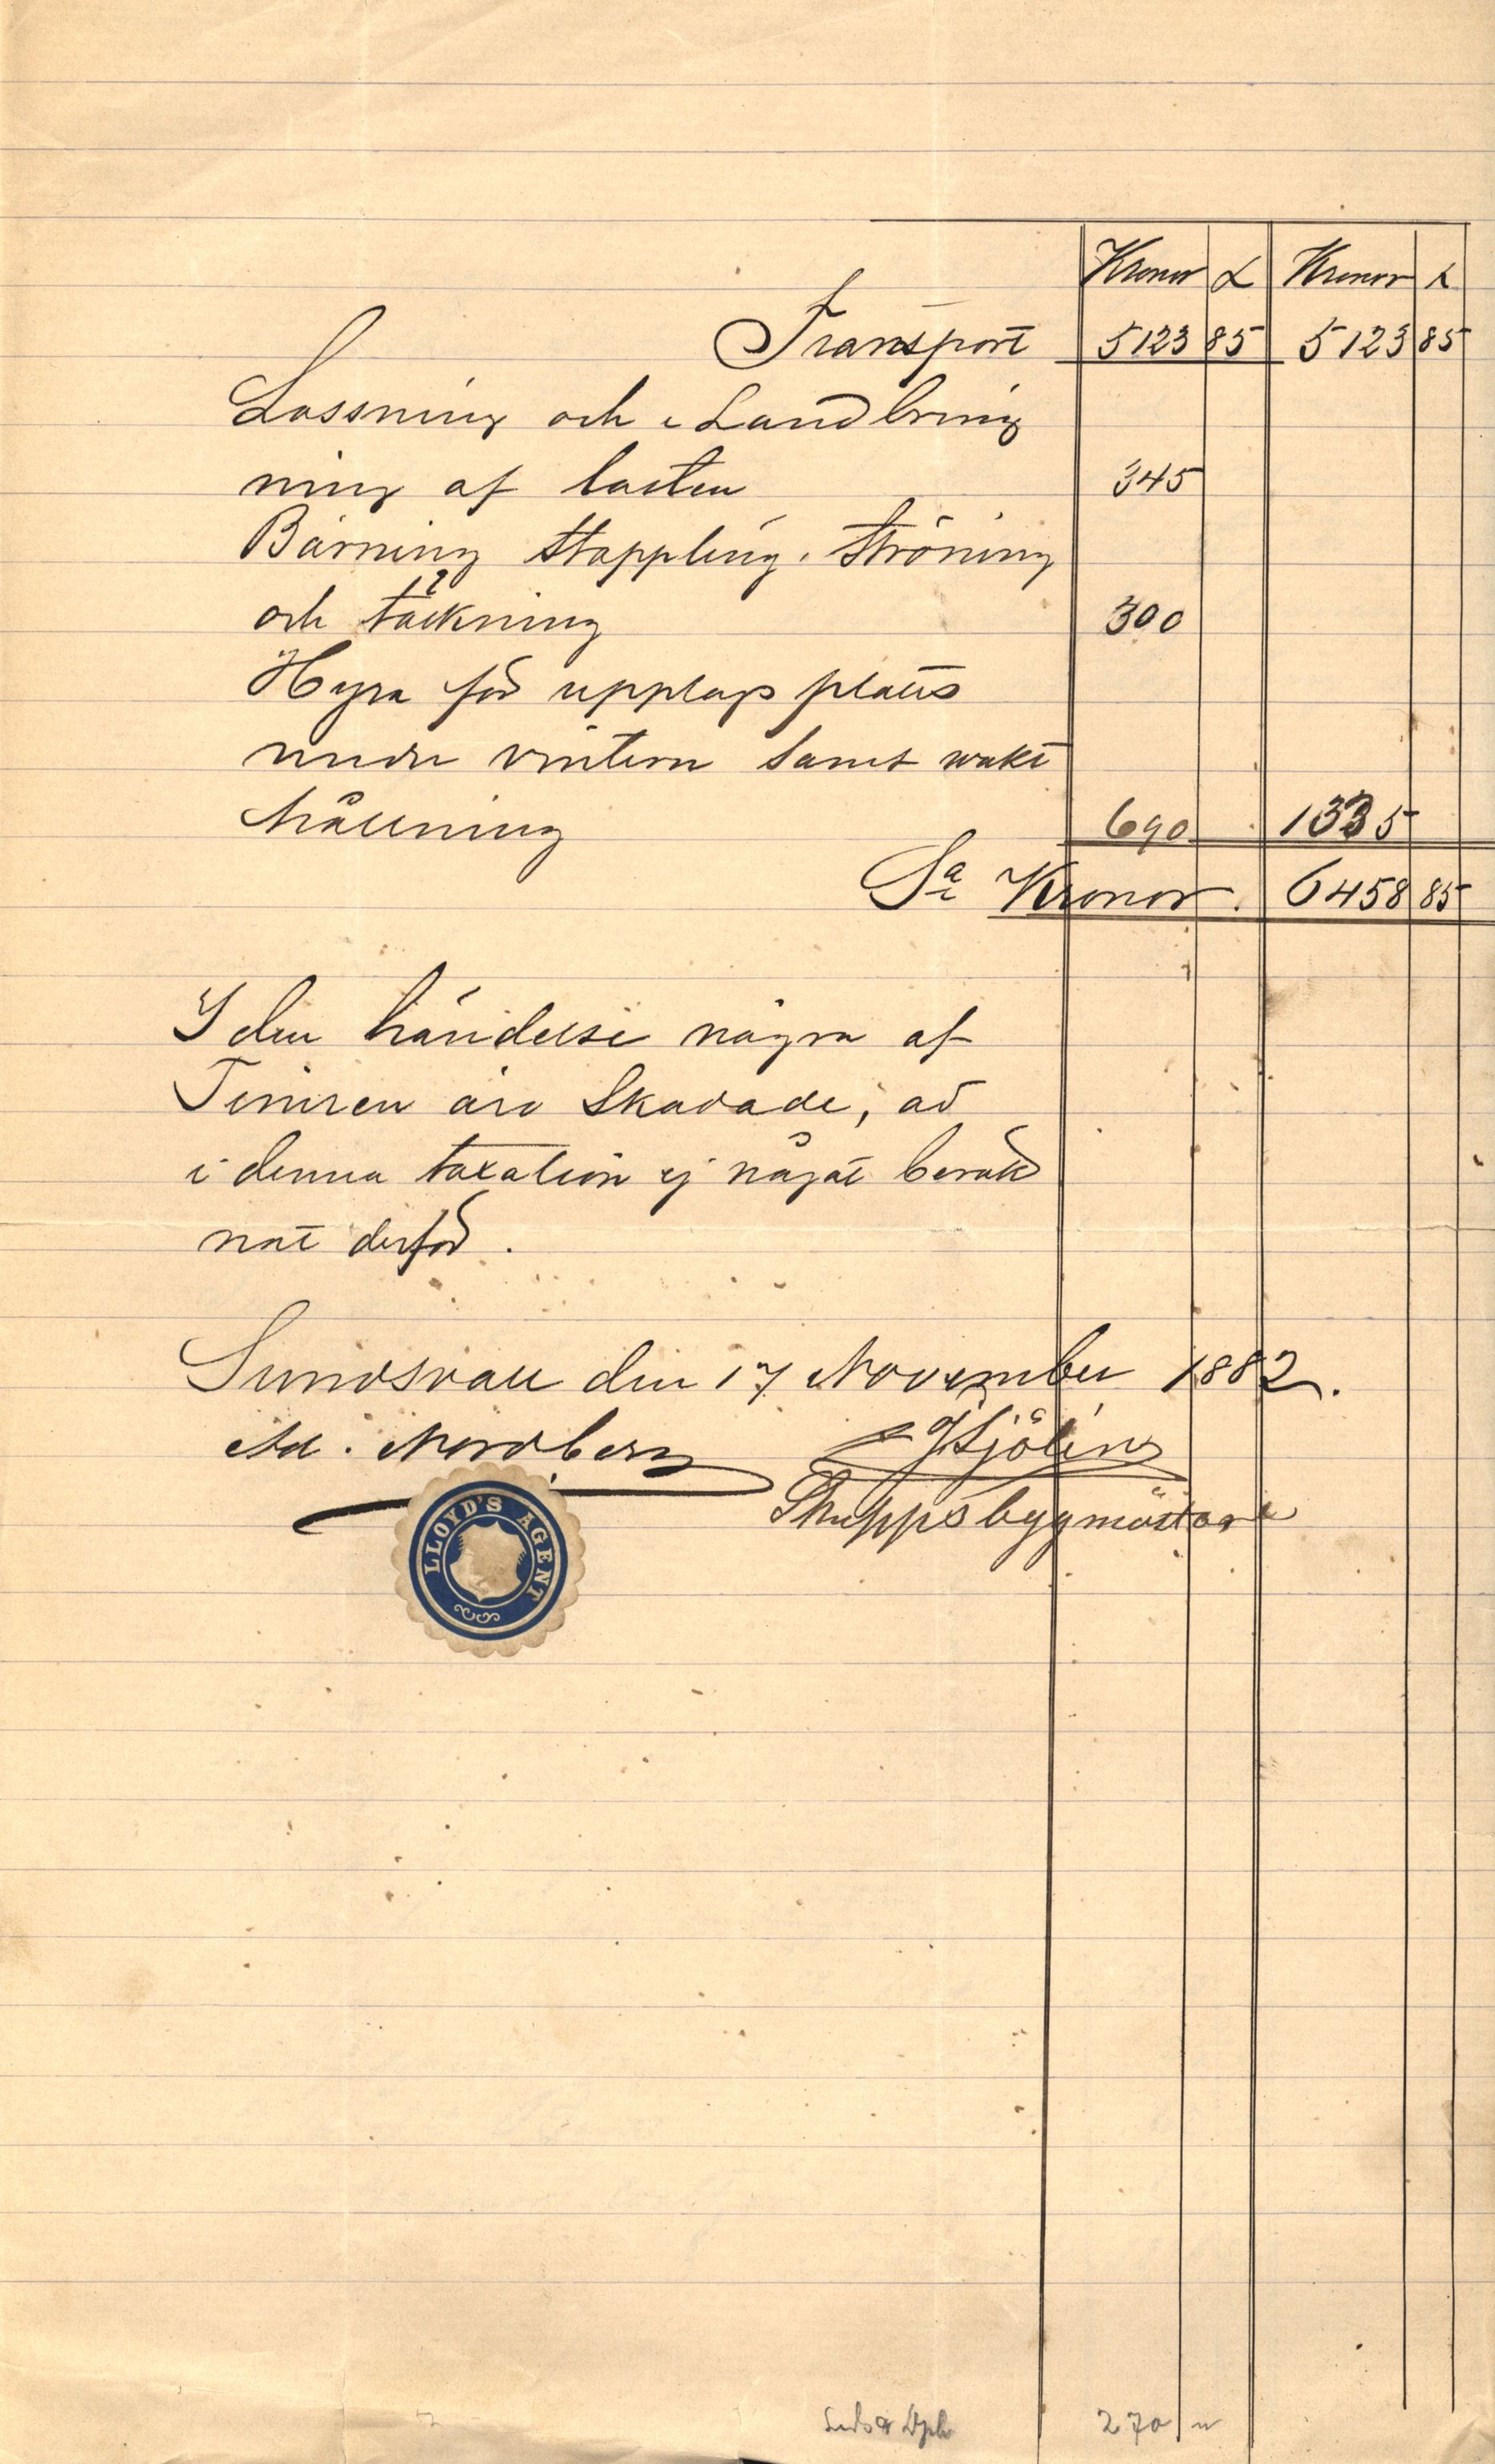 Kronor Kronor
Transport 5123 85 5123 85
Lossning och Landbring
ning af lasten 345
Bärning stappling, ströning
och täckning 300
Hyra för upplags plats
under vintern samt wakt
hållning 690 1335
Sa Kronor. 6458 85
I den händelse några af
Timren äro skadade, är
i denna taxation ej något beräk
nat derför.
Sundsvall den 17 November 1882.
Ad. Nordberg Sjölin
Skeppsbyggmästare
LLOYD'S AGENT
270